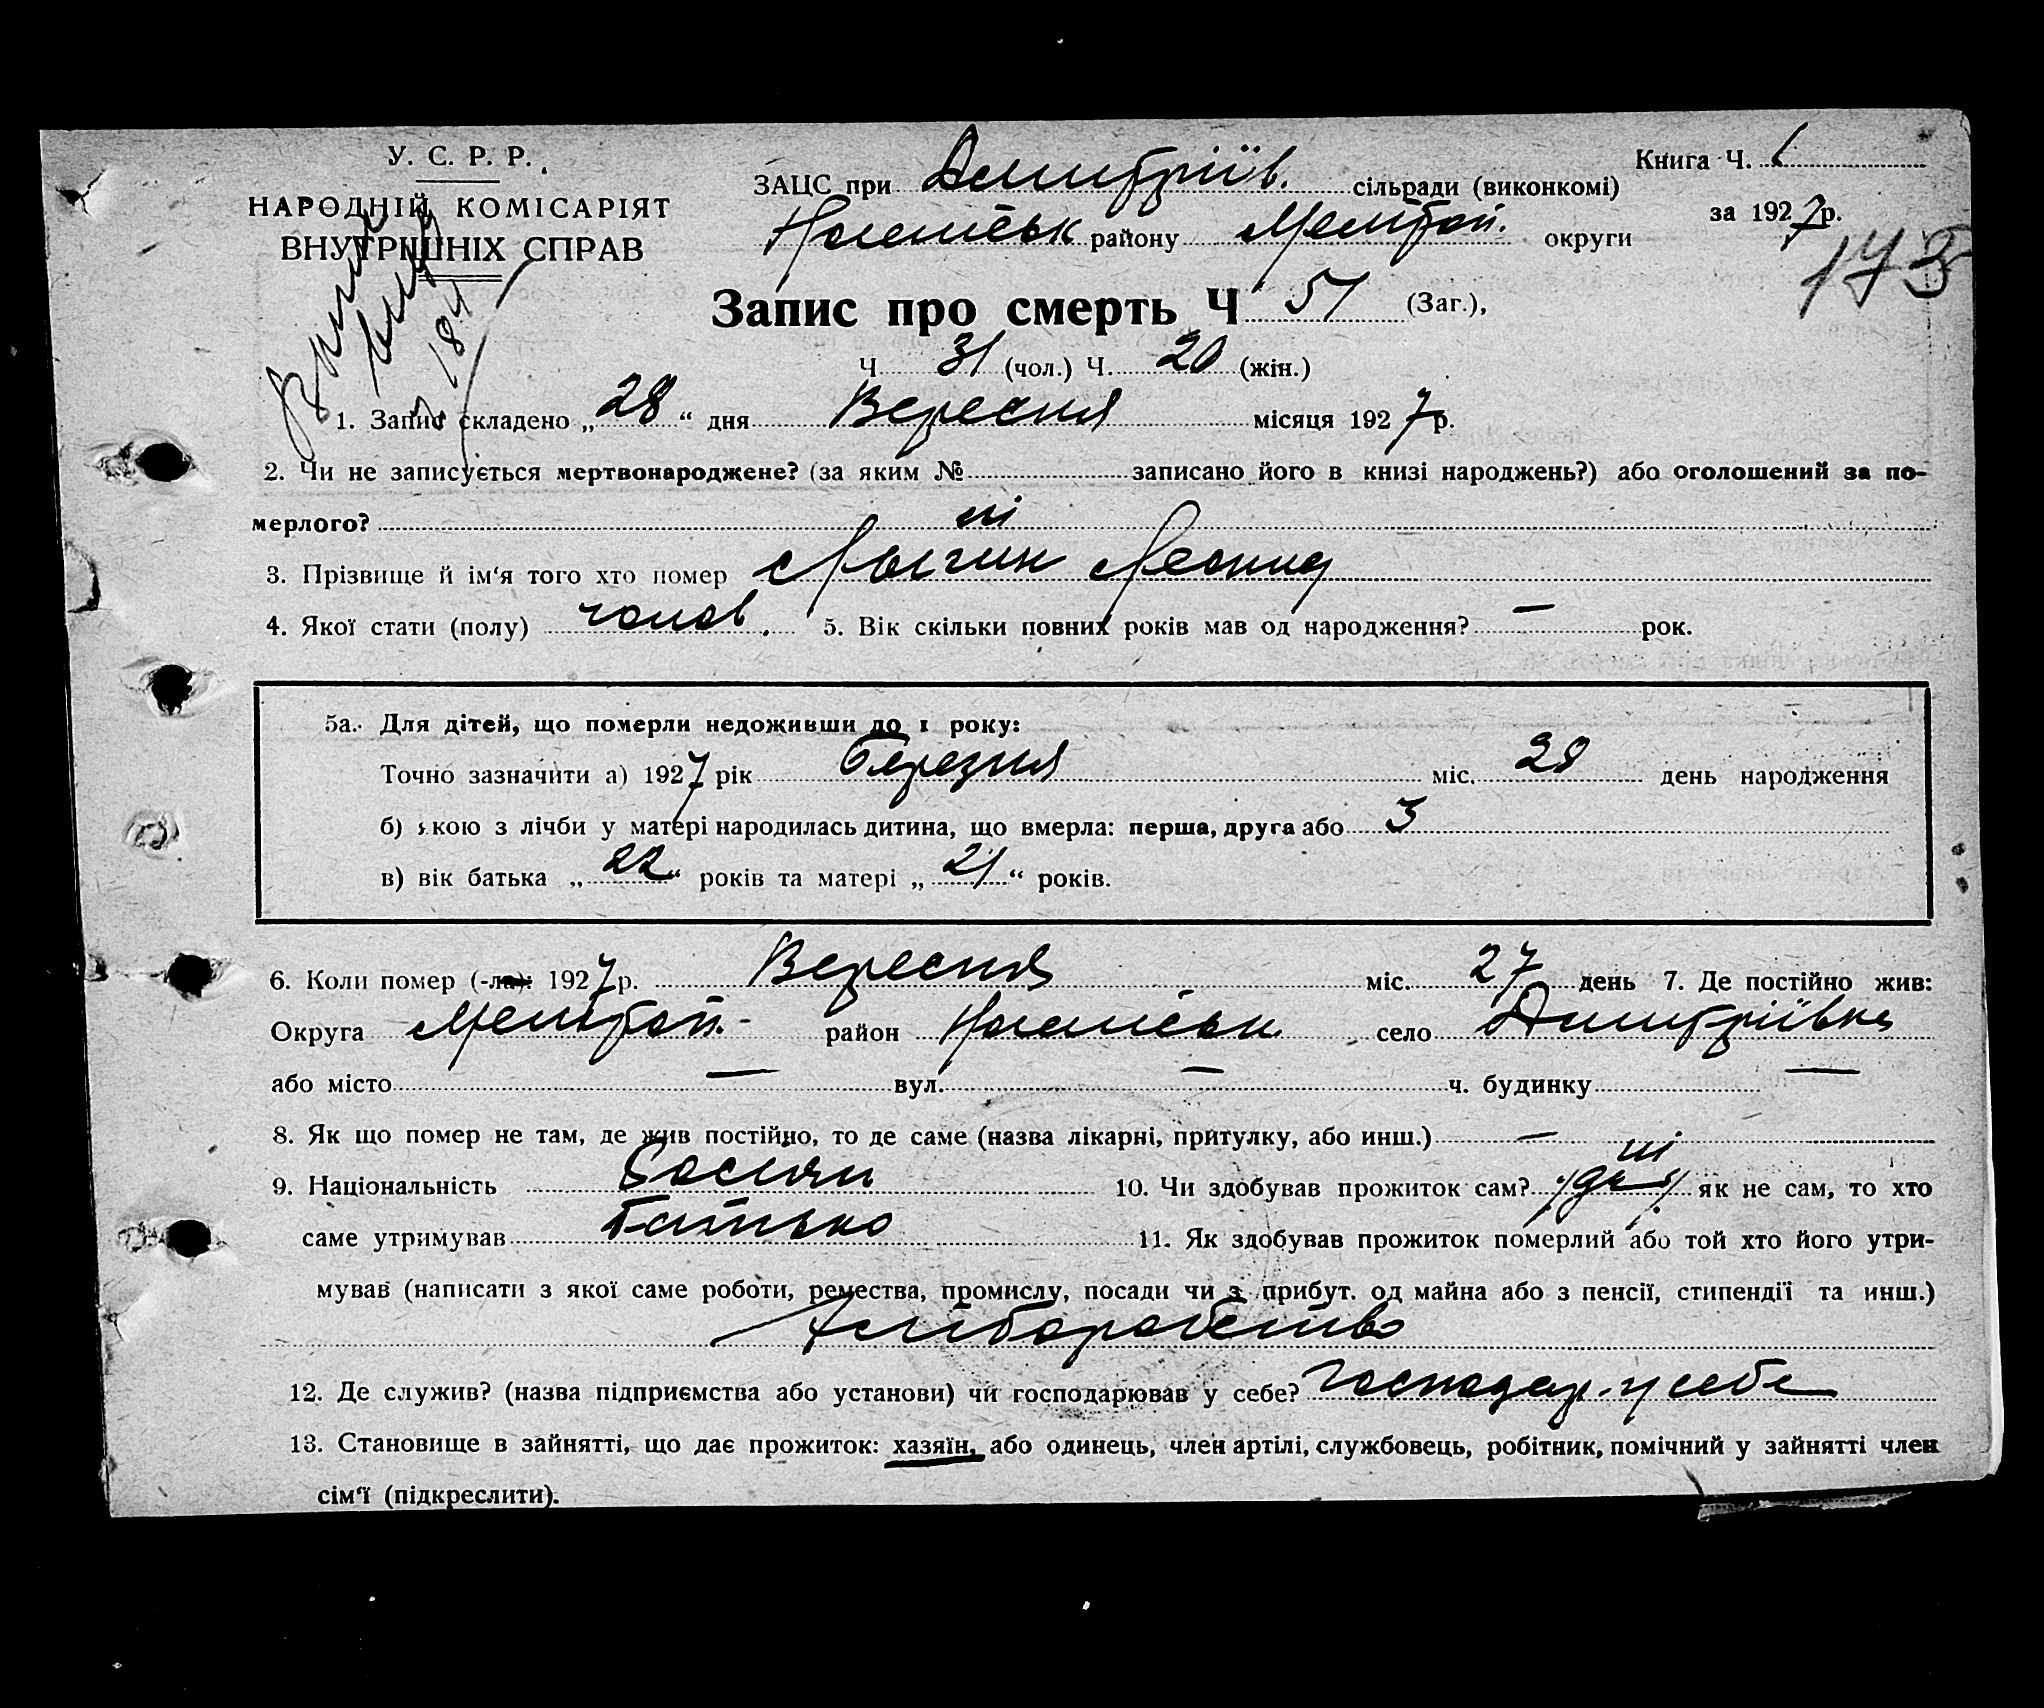 У. С. Р. Р.
НАРОДНІЙ КОМІСАРІЯТ
ВНУТРІШНІХ СПРАВ
ЗАЦС при Дмитріїв. сільради (виконкомі)
Ногайськ району Мелітоп. округи
Книга Ч. 1
за 1927 р.
173
Запис про смерть Ч 51 (Заг.),
Ч 31 (чол.) Ч. 20 (жін.)
1. Запис складено „28“ дня Вересня місяця 1927 р.
2. Чи не записується мертвонароджене? (за яким № записано його в книзі народжень?) або оголошений за по-
мерлого? ні
3. Прізвище й ім‘я того хто помер Леонид
4. Якої стати (полу) чолов. 5. Вік скільки повних років мав од народження? — рок.
5а. Для дітей, що померли недоживши до 1 року:
Точно зазначити а) 1927 рік березня міс. 28 день народження
б) якою з лічби у матері народилась дитина, що вмерла: перша, друга або 3
в) вік батька „22“ років та матері „21“ років.
6. Коли помер (-ла): 1927 р. Вересня міс. 27 день 7. Де постійно жив:
Округа Мелітоп. район Ногайськ село Дмитріївка
або місто — вул. — ч. будинку —
8. Як що помер не там, де жив постійно, то де саме (назва лікарні, притулку, або инш.) —
9. Національність 10. Чи здобував прожиток сам? ні як не сам, то хто
саме утримував Батько 11. Як здобував прожиток померлий або той хто його утри-
мував (написати з якої саме роботи, ремества, промислу, посади чи з прибут. од майна або з пенсії, стипендії та инш.)
Хліборобство
12. Де служив? (назва підприємства або установи) чи господарював у себе? господар. у себе
13. Становище в зайнятті, що дає прожиток: хазяїн, або одинець, член артілі, службовець, робітник, помічний у зайнятті член
сім‘ї (підкреслити).